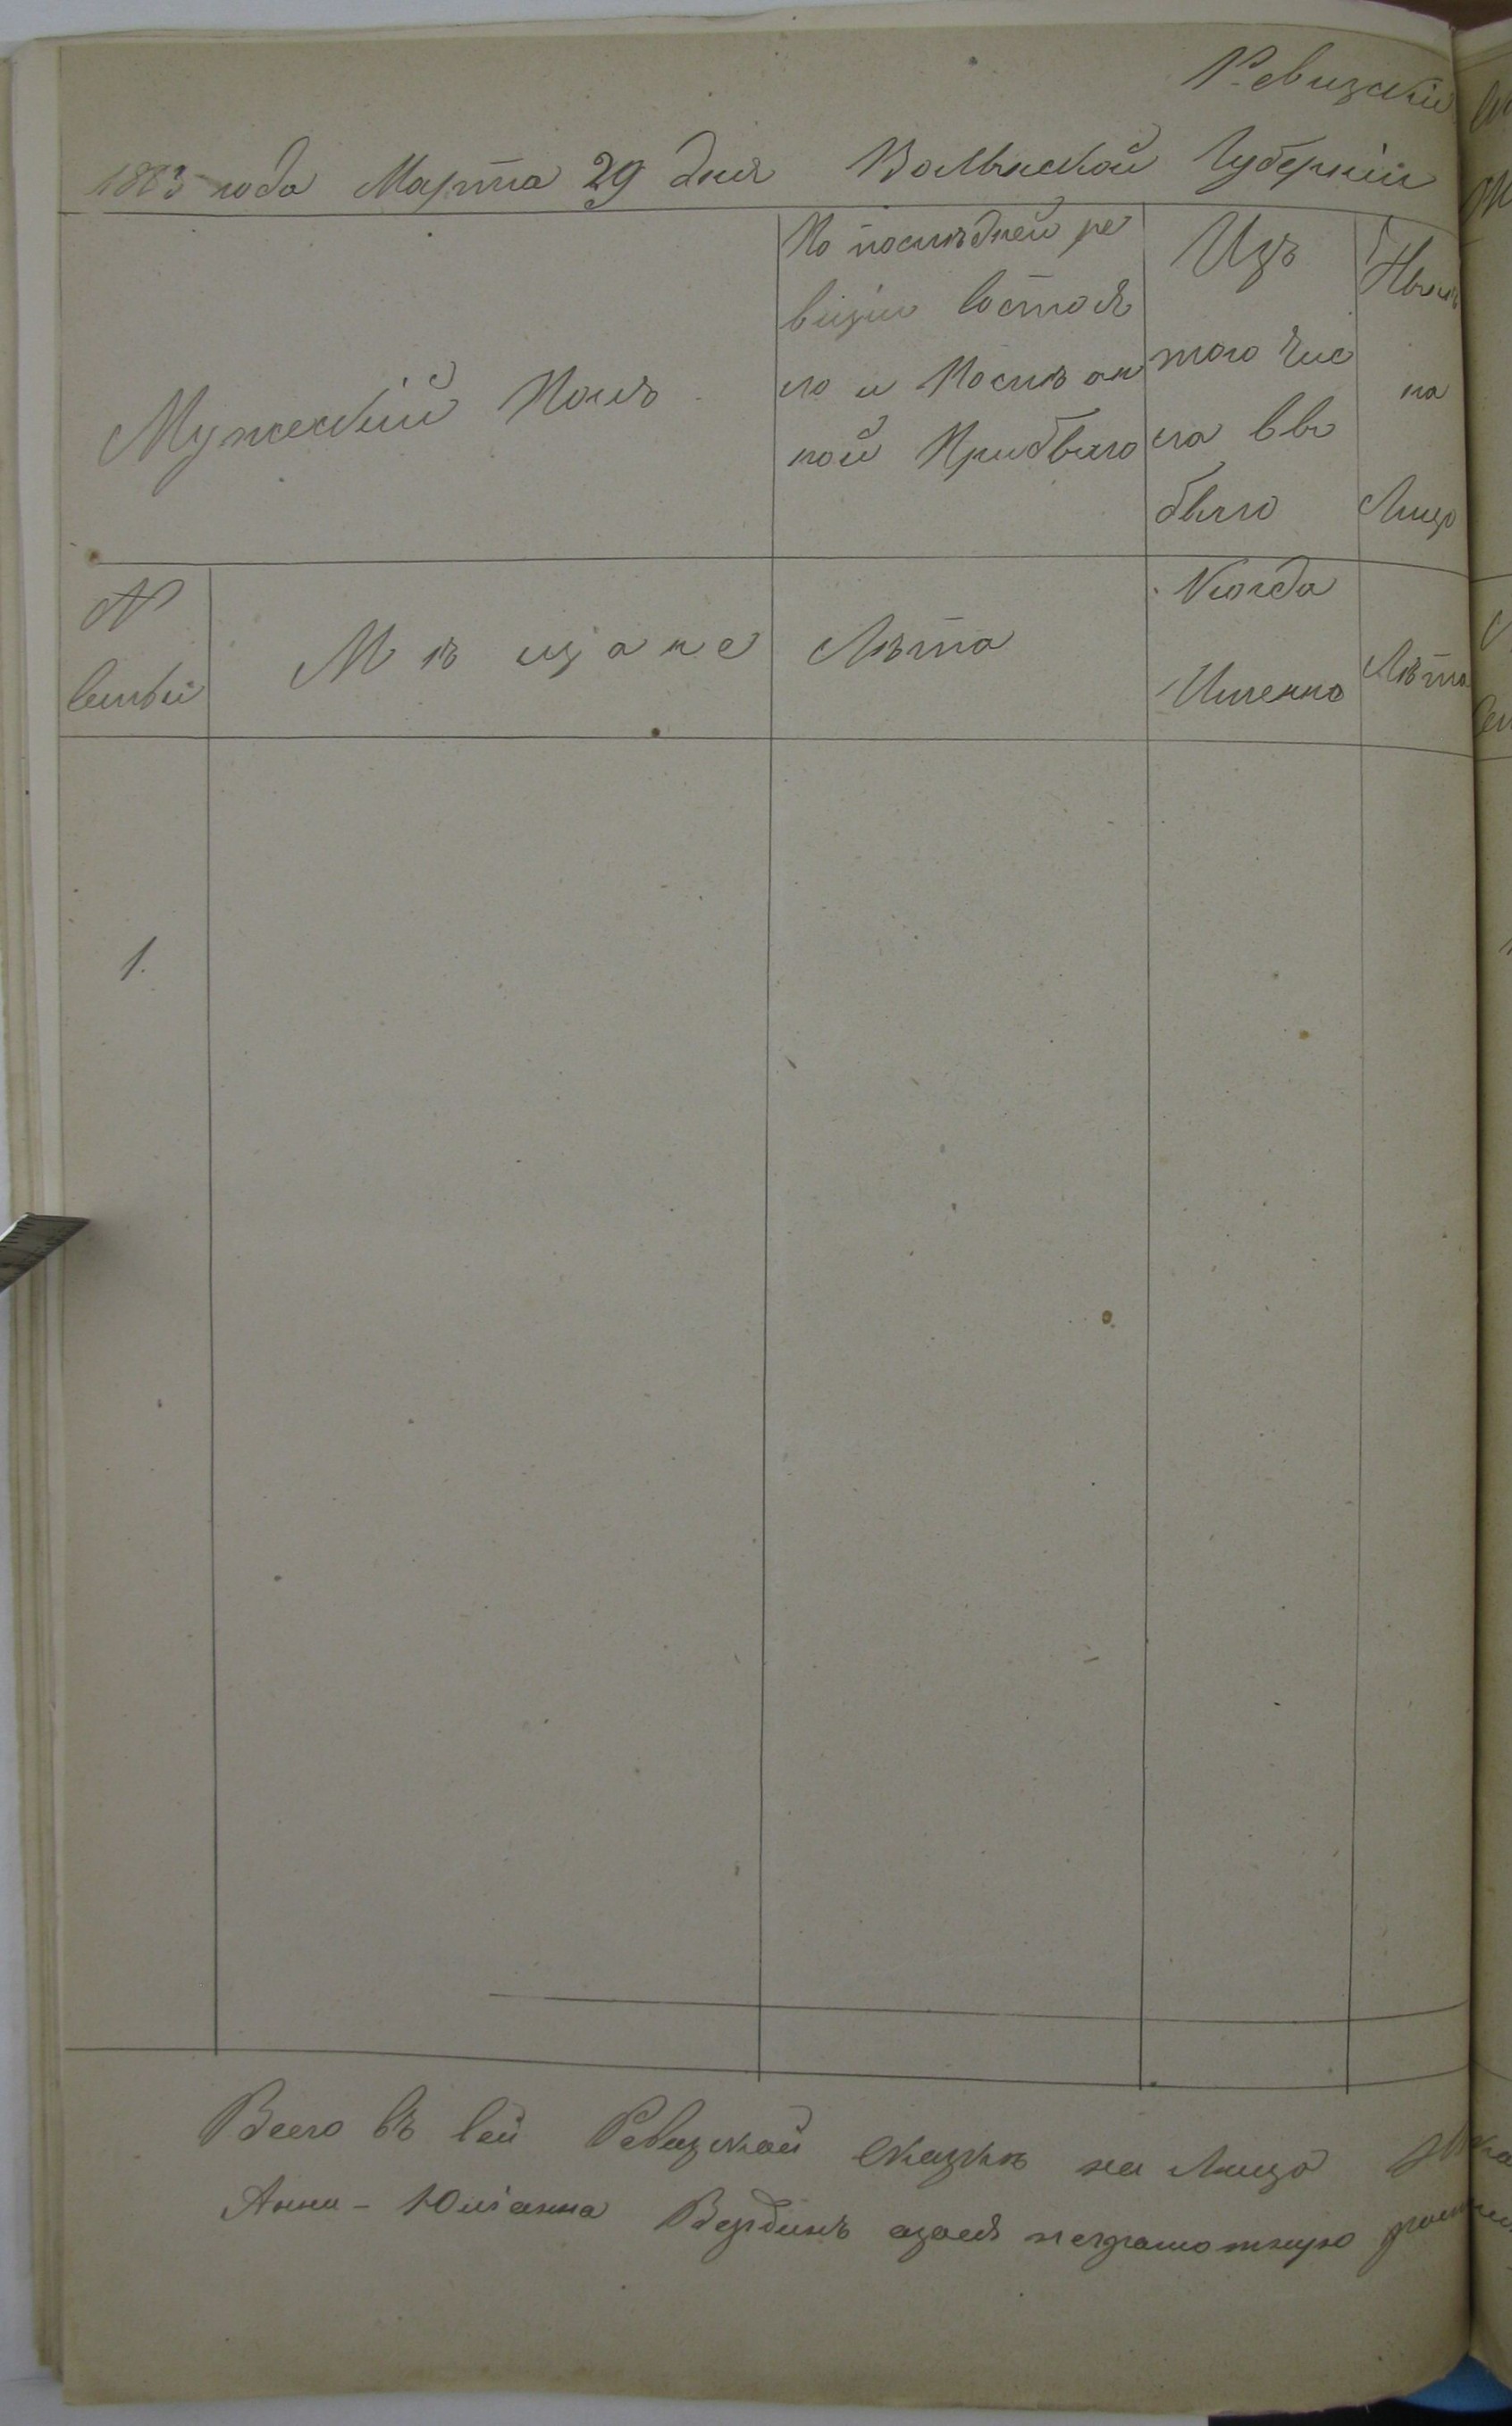 Ревизскій
1883 года Марта 29 дня Волынской Губерніи
Мужескій Полъ
По послѣдней ре
визіи состоя
ло и Послѣ он
ной Прибыло
Изъ
того Чис
ла вы
было
Нынѣ
на
Лицо
№
семьи
Мѣщане
Лѣта
Когда
Именно
Лѣта
1.
Всего въ сей Ревизской Сказкѣ на Лицо
Анна-Юліанна а за нея неграмотную